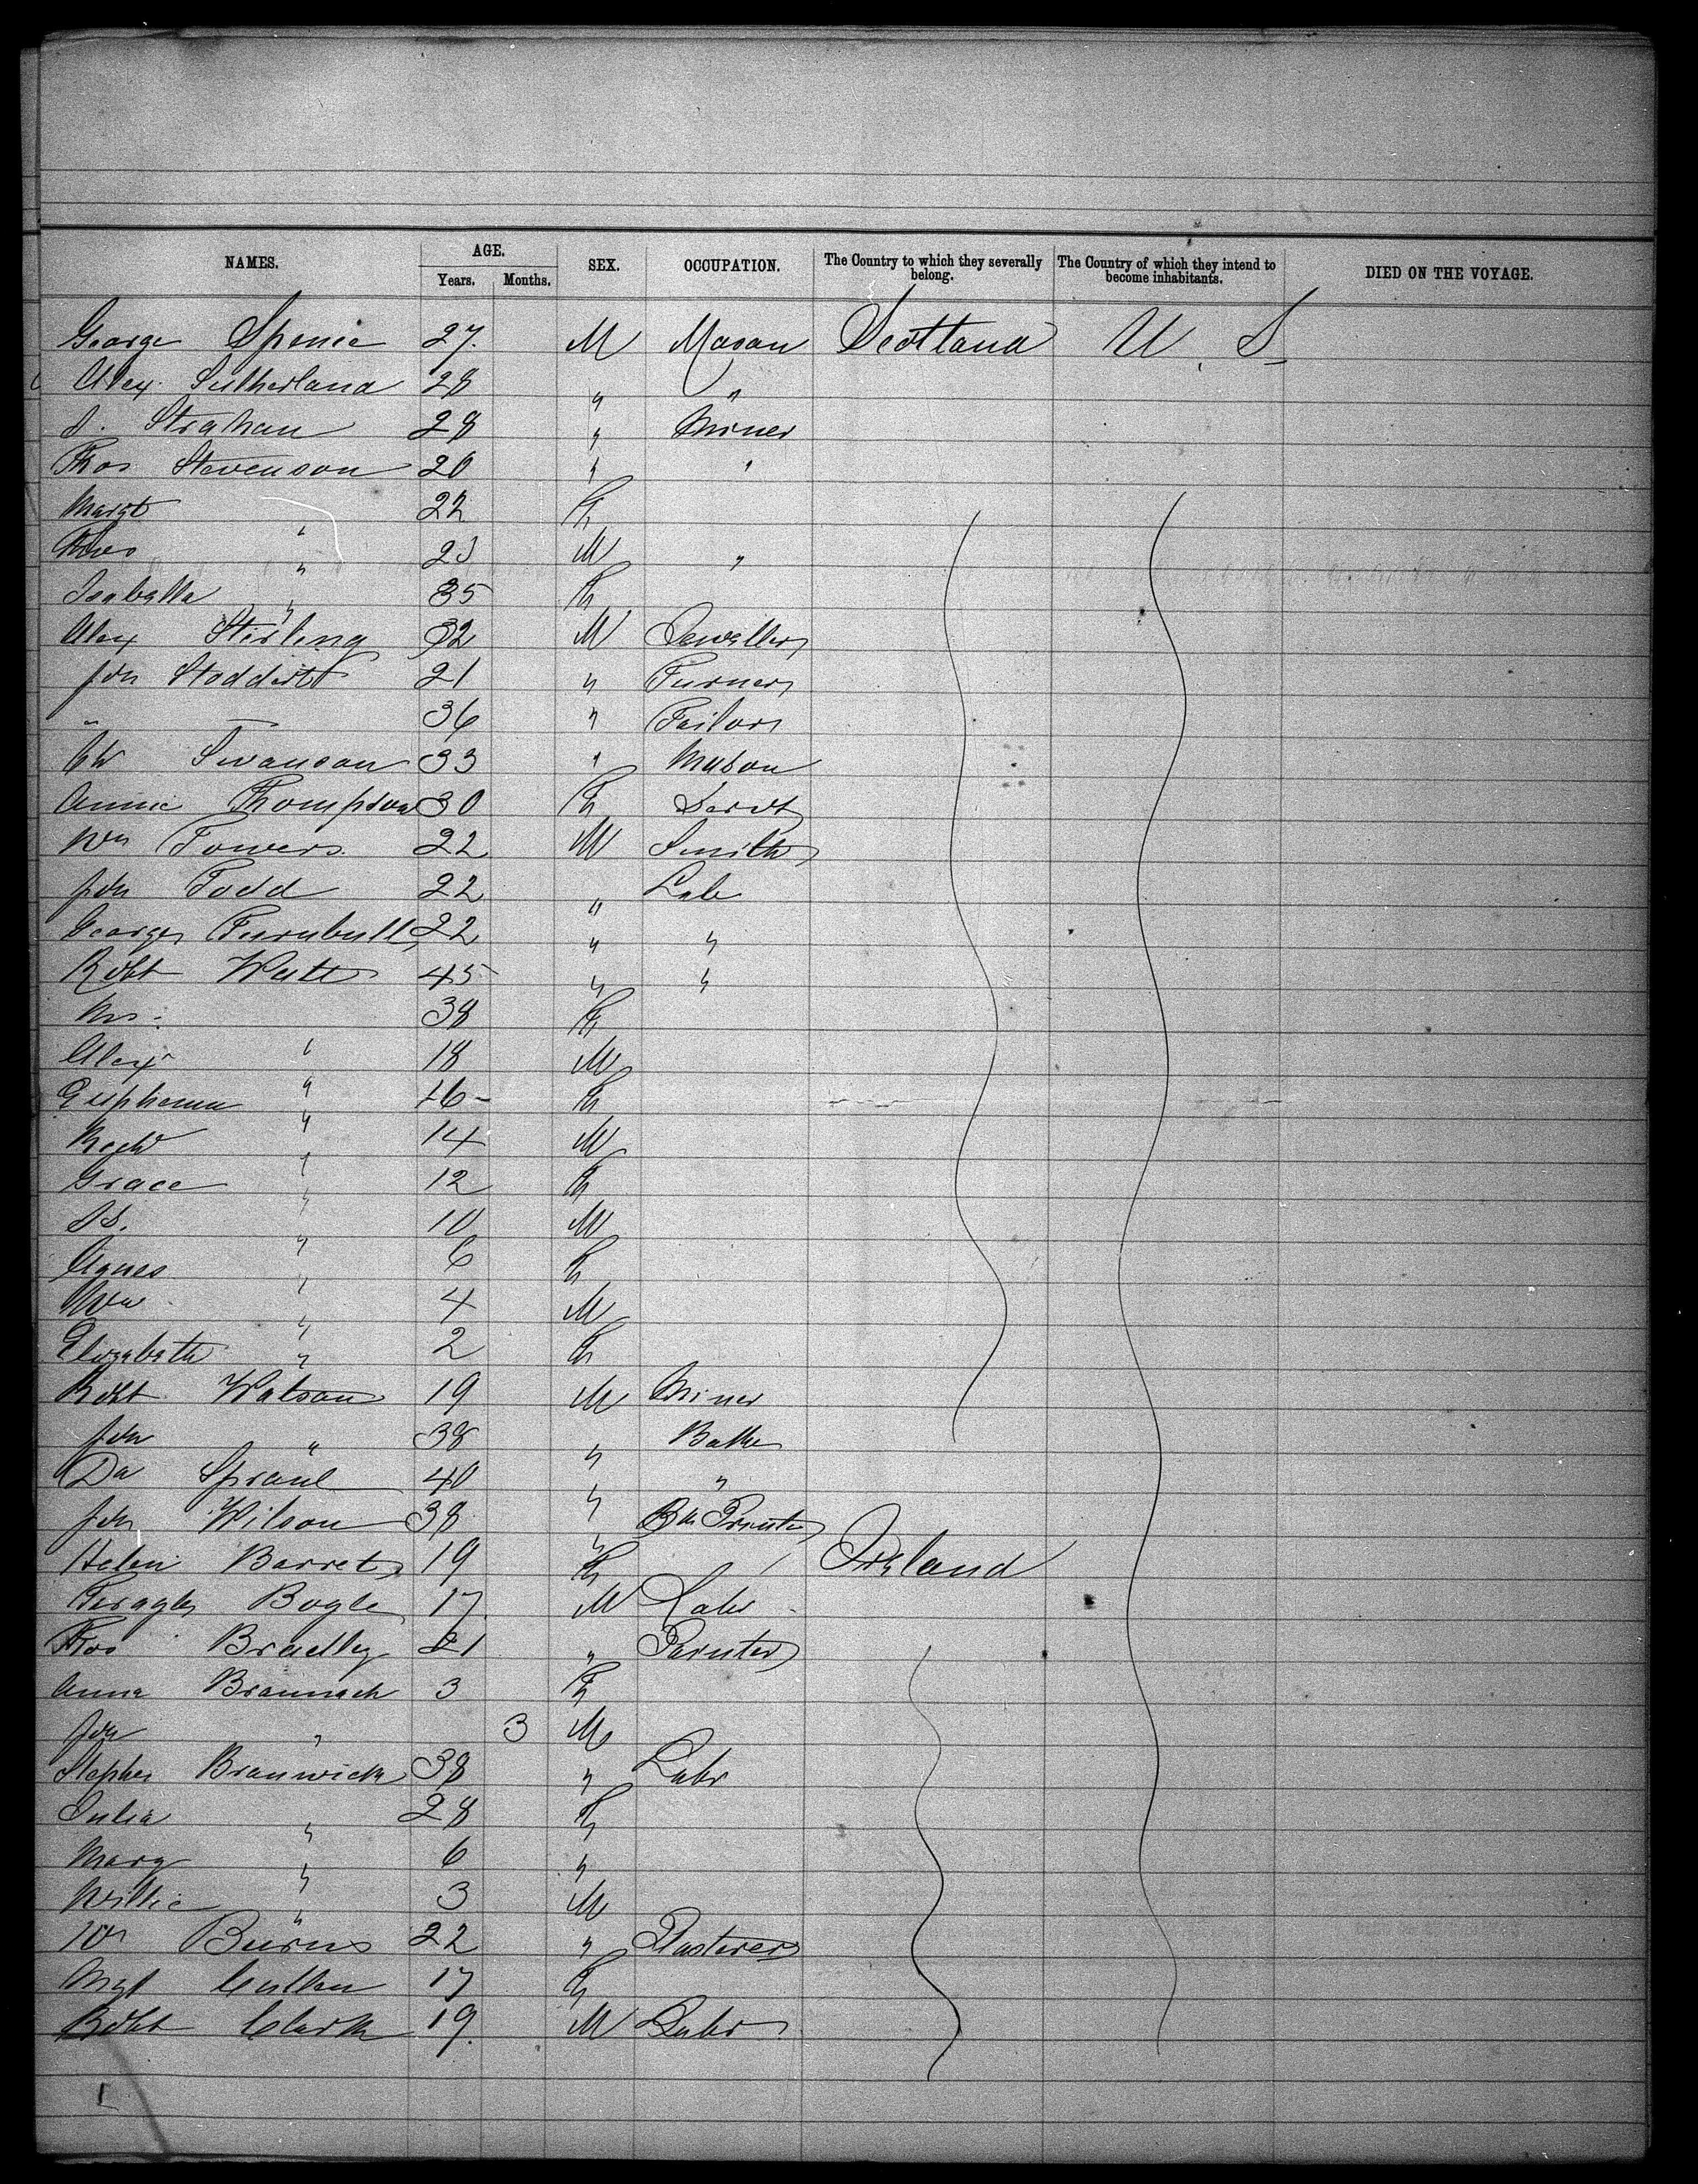 NAMES. AGE. SEX. OCCUPATION. The Country to which they severally belong. The Country of which they intend to become inhabitants. DIED ON THE VOYAGE.
Years. Months.
George Spence 27 M Mason Scotland U S
Alex. Sutherland 28 " "
J. Strahan 28 " Miner
Thos Stevenson 20 " "
Margt " 22 F
Thos " 23 M "
Isabella " 35 F
Alex Stirling 32 M Jeweller
Jon Stoddert 21 " Turner
" — 36 " Tailor
Swanson 33 " Mason
Annie Thompson 30 F Servt
Wm Towers 22 M Smith
Jon Todd 22 " Lab
George Turnbull 22 " "
Robt Watt 45 " "
Mrs. " 38 F
Alex " 18 M
Euphema " 16 F
" 14 M
Grace " 12 F
Js. " 10 M
Agnes " 6 F
Wm " 4 M
Elizabeth " 2 F
Robt Watson 19 M Miner
Jon " 38 " Baker
Da Sproul 40 " "
Jon Wilson 38 " Printer
Helen Barret 19 F Ireland
Bogle 17 M Labr
Thos Bradley 21 " Painter
Anna Brannack 3 F
Jon " 3 M
Stephen Branwick 38 " Labr
Julia " 28 F
Mary " 6 "
Willie " 3 M
Wm Burns 22 " Plasterer
Mgt Cullen 17 F
Robt Clark 19 M Labr